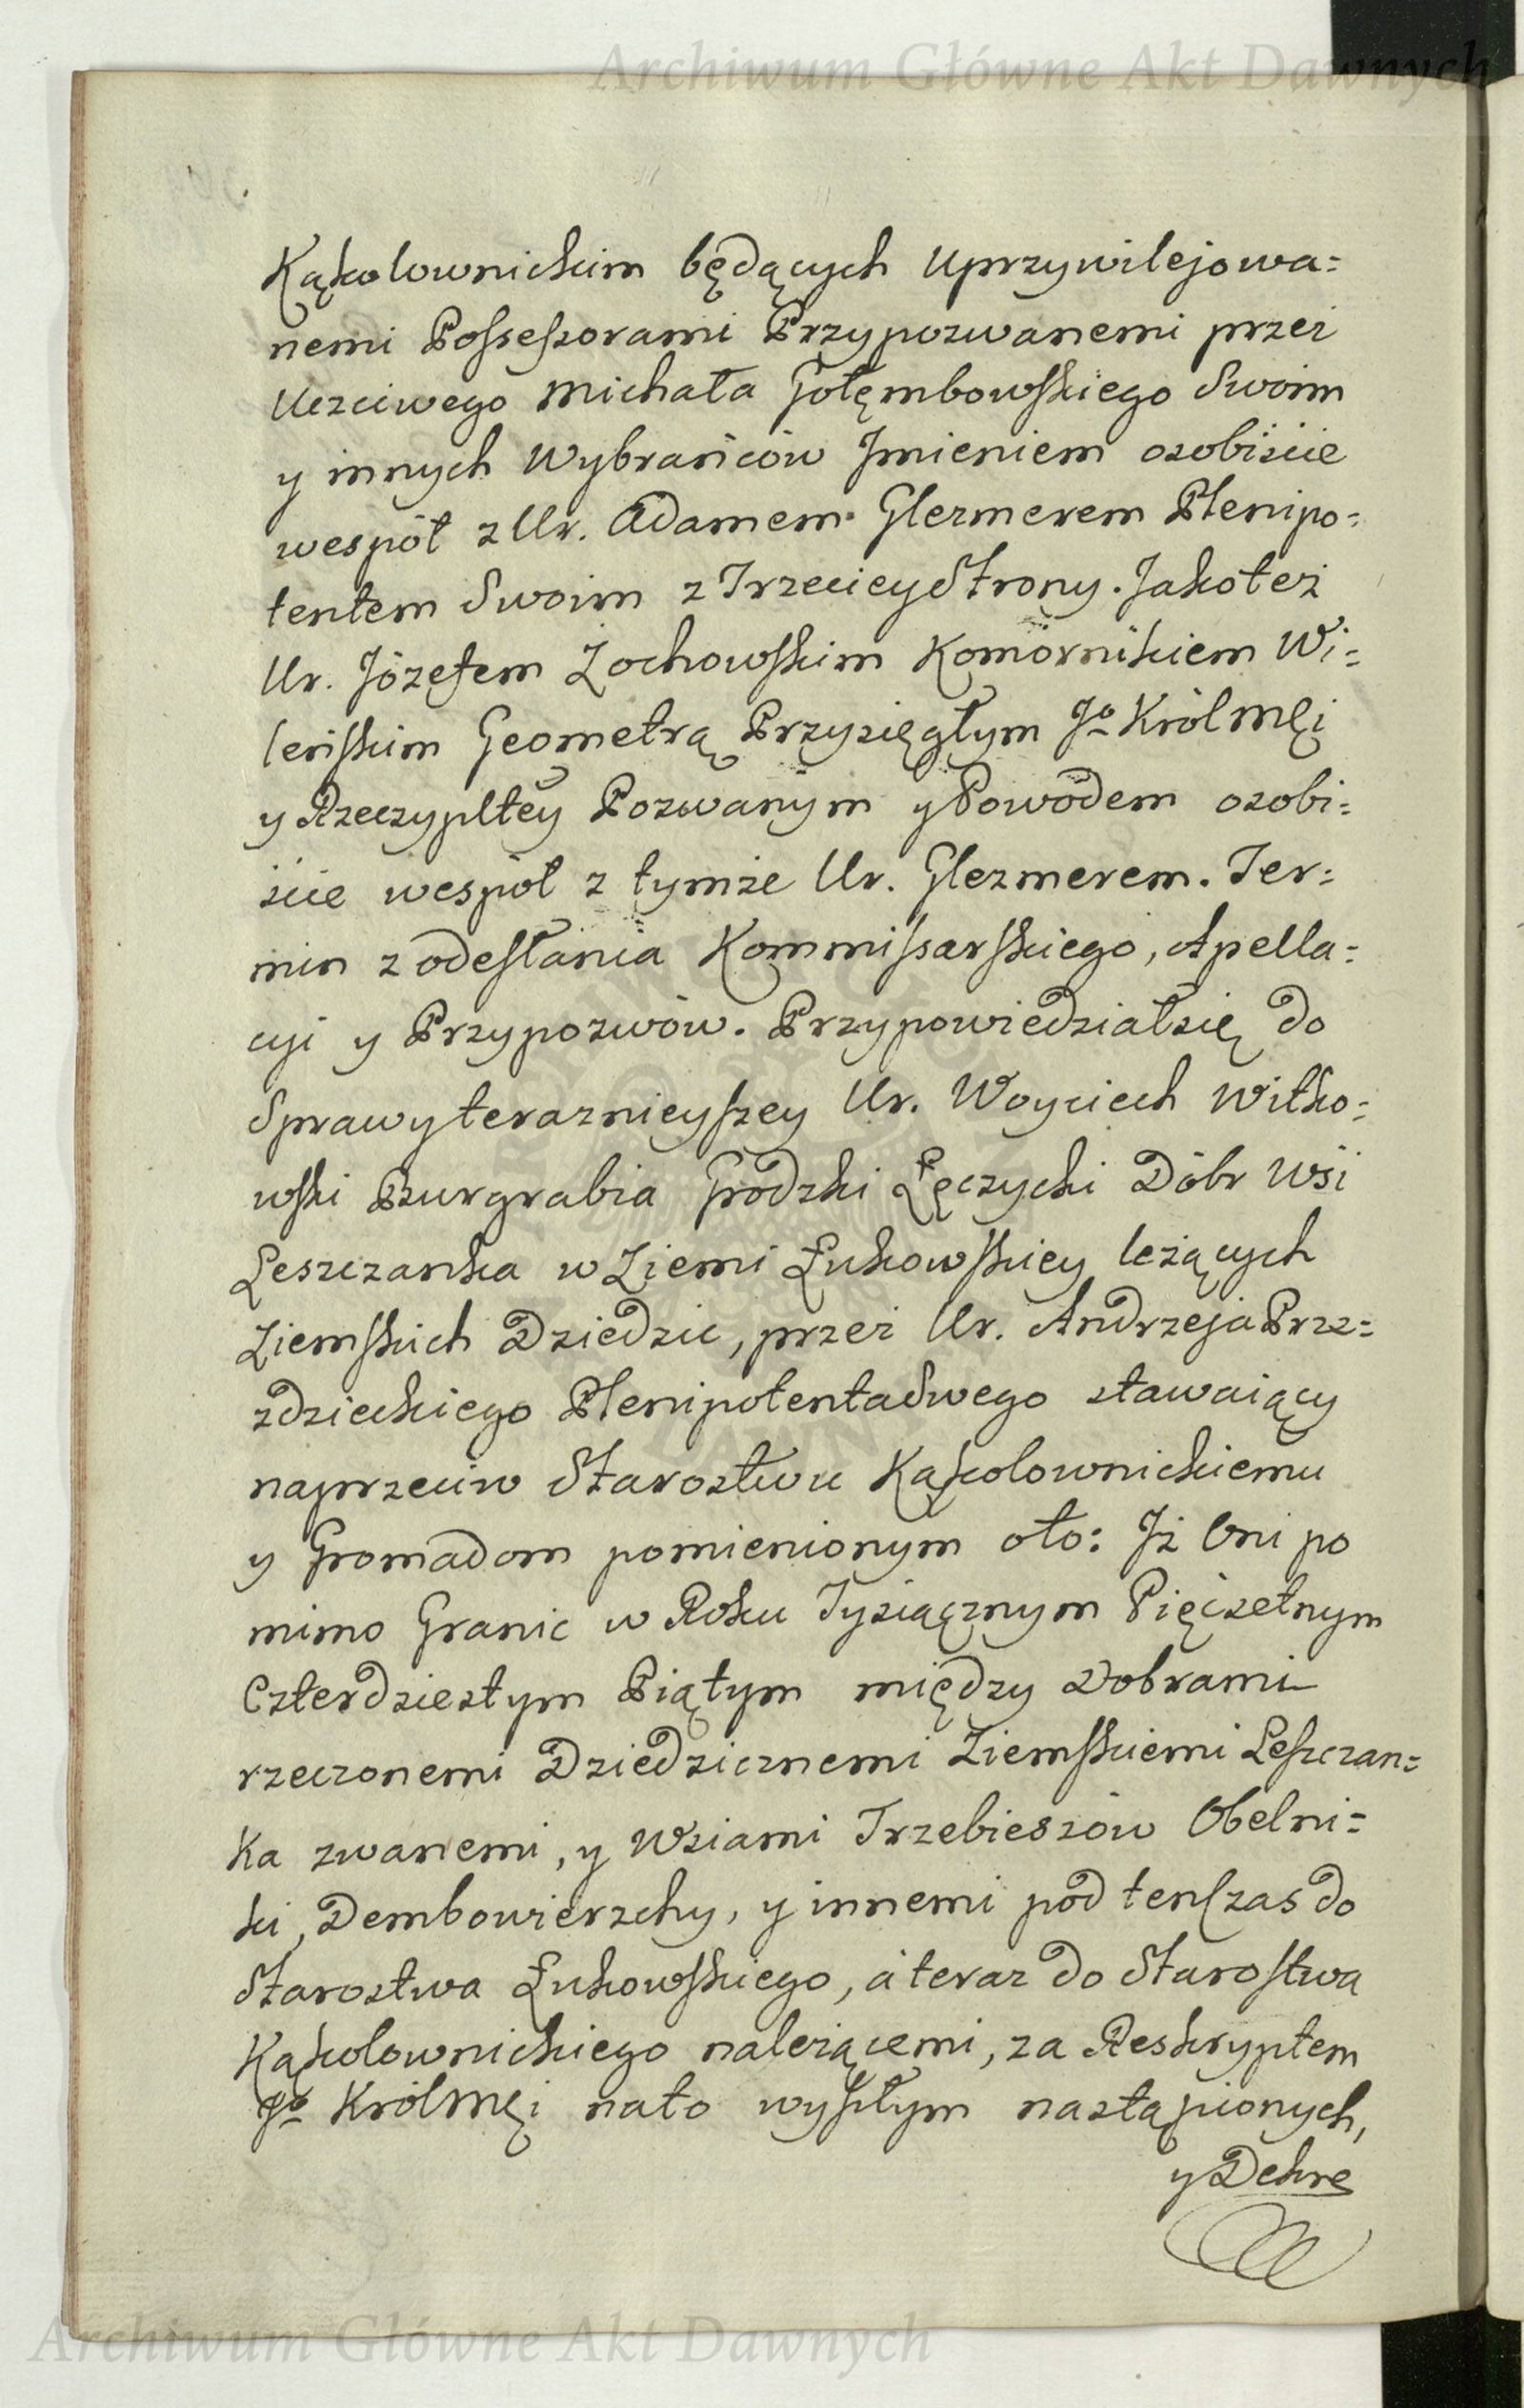 Archiwum Główne Akt Dawnych
Kąkolownickim będących uprzywilejowa=
nemi Possessorami Przypozwanemi przez
Uczciwego Michała Gołęmbowskiego Swoim
y innych Wybrańców Jmieniem osobiście
wespół z Ur. Adamem Glezmerem Plenipo=
tentem Swoim z Trzeciey Strony. Jakoteż
Ur. Józefem Żochowskim Komornikiem Wi=
leńskim Geometrą Przysięgłym Jo KrólMCi
y Rzeczypltey Pozwanym y Powodem osobi=
ście wespół z tymże Ur. Glezmerem. Ter=
min z odesłania Kommissarskiego, Apella=
cyi y Przypozwów. Przypowiedział się do
Sprawy teraznieyszey Ur. Woyciech Witko=
wski Burgrabia Grodzki Łęczycki Dóbr Wsi
Leszczanka w Ziemi Łukowskiey leżących
Ziemskich Dziedzic, przez Ur. Andrzeja Prze=
zdzieckiego Plenipotenta Swego stawaiący
naprzeciw Starostwu Kąkolownickiemu
y Gromadom pomienionym oto: Jż Oni po
mimo Granic w Roku Tysiącznym Pięćsetnym
Czterdziestym Piątym między Dobrami
rzeczonemi Dziedzicznemi Ziemskiemi Leszczan=
ka zwanemi, y Wsiami Trzebieszów Obelni=
ki, Dembowierzchy, y innemi pod tenczas do
Starostwa Łukowskiego, a teraz do Starostwa
Kąkolownickiego należącemi, za Reskryptem
Jo KrólMCi na to wyszłym nastąpionych,
y Dekre
Archiwum Główne Akt Dawnych